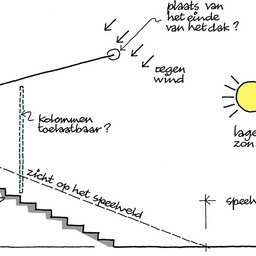 plaats van
het einde
van het dak?
regen
wind
kolommen
toelaatbaar?
lage
zon
zicht op het speelveld
speelv